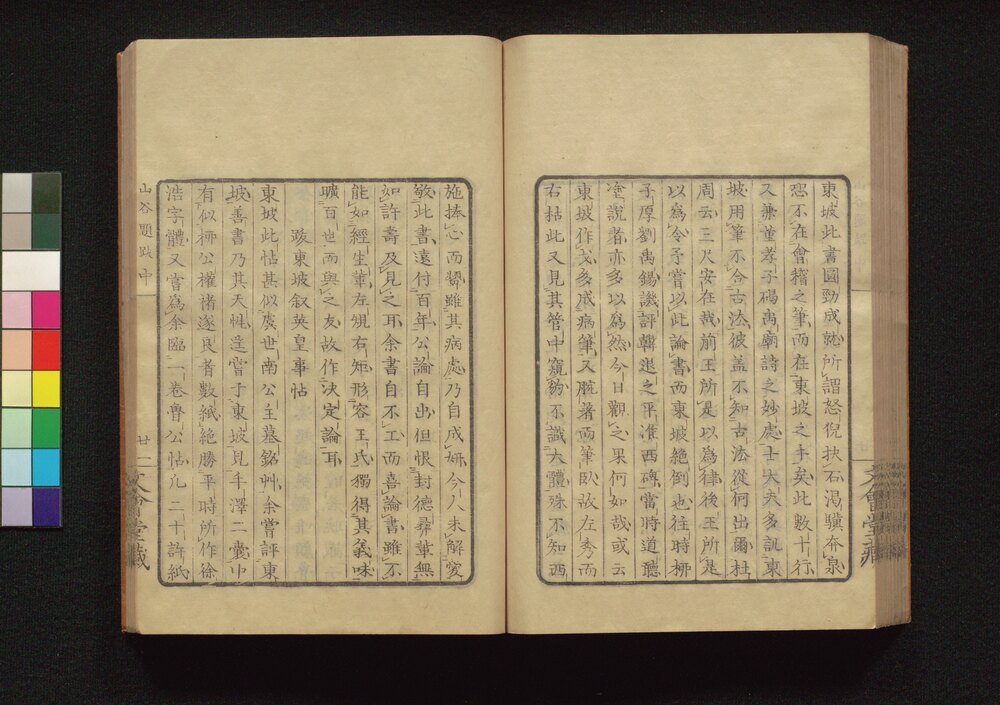 東坡此書圓勁成就所謂怒猊抉石渴驥奔泉
恐不在會稽之筆而在東坡之手矣此數十行
又兼董孝子碣禹廟詩之妙處士大夫多譏東
坡用筆不合古法彼盖不知古法從何出爾杜
周云三尺安在哉前王所是以爲律後王所是
以爲令予嘗以此論書而東坡絶倒也往時柳
子厚劉禹錫譏評韓退之平淮西碑當時道聽
塗說者亦多以爲然今日觀之果何如哉或云
東坡作戈多成病筆又腕著而筆臥故左秀而
右枯此又見其管中窺豹不識大體殊不知西
施捧心而顰雖其病處乃自成妍今人未解愛
敬此書遠付百年公論自出但恨封德彝輩無
如許壽及見之耳余書自不工而喜論書雖不
能如經生輩左規右矩形容王氏獨得其義味
曠百世而與之友故作決定論耳
跋東坡叙英皇事帖
東坡此帖甚似虞世南公主墓銘艸余嘗評東
坡善書乃其天性逹嘗于東坡見手澤二囊中
有似柳公權褚遂良者數紙絶勝平時所作徐
浩字體又嘗爲余臨一卷魯公帖凡二十許紙
山谷題跋中
廿二
文會堂藏
文會堂藏